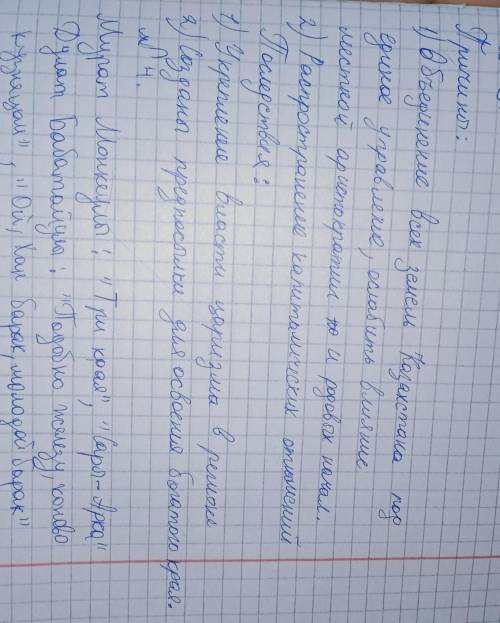 Причины:
1) Объединение всех земель Казахстана под
единое управление, ослабить влияние
местной аристократии и родовых начал.
2) Распространение капиталических отношений
Последствия:
1) Укрепление власти царизма в регионе
2) Созданы предпосылки для освоения богатого края.
№ 4.
Мурат Монкеулы: "Три края", "Сары-Арка"
Дулат Бабатайулы: "Подобно железу, коново
кузнецом", "Ой, Хан Барак, молодой Барак"